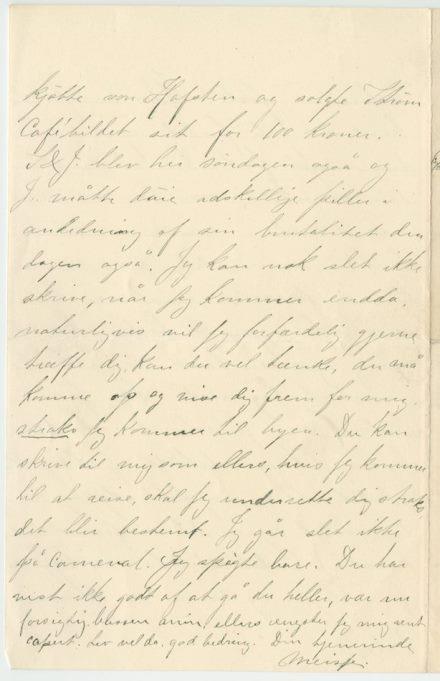 kjøtte von Hofsten og solgte Strøm
Cafébildet sit for 100 kroner.
S & J. blev her søndagen også og
J. måtte däie adskillige piller i
anledning af sin brutalitet den
dagen også. Jeg kan nok slet ikke
skrive, når jeg kommer endda,
naturligvis vil jeg forfærdelig gjerne
træffe dig, kan du vel tænke, du må
komme op og vise dig frem for mig
straks jeg kommer til byen. Du kan
skrive til mig som ellers, hvis jeg kommer
til at reise, skal jeg underrette dig straks
det blir bestemt. Jeg går slet ikke
på Carneval. Jeg spøgte bare. Du har
vist ikke godt af at gå du heller, vær nu
forsigtig bare, ellers ængster jeg mig rent
Lev vel da, god bedring. Din tjenerinde